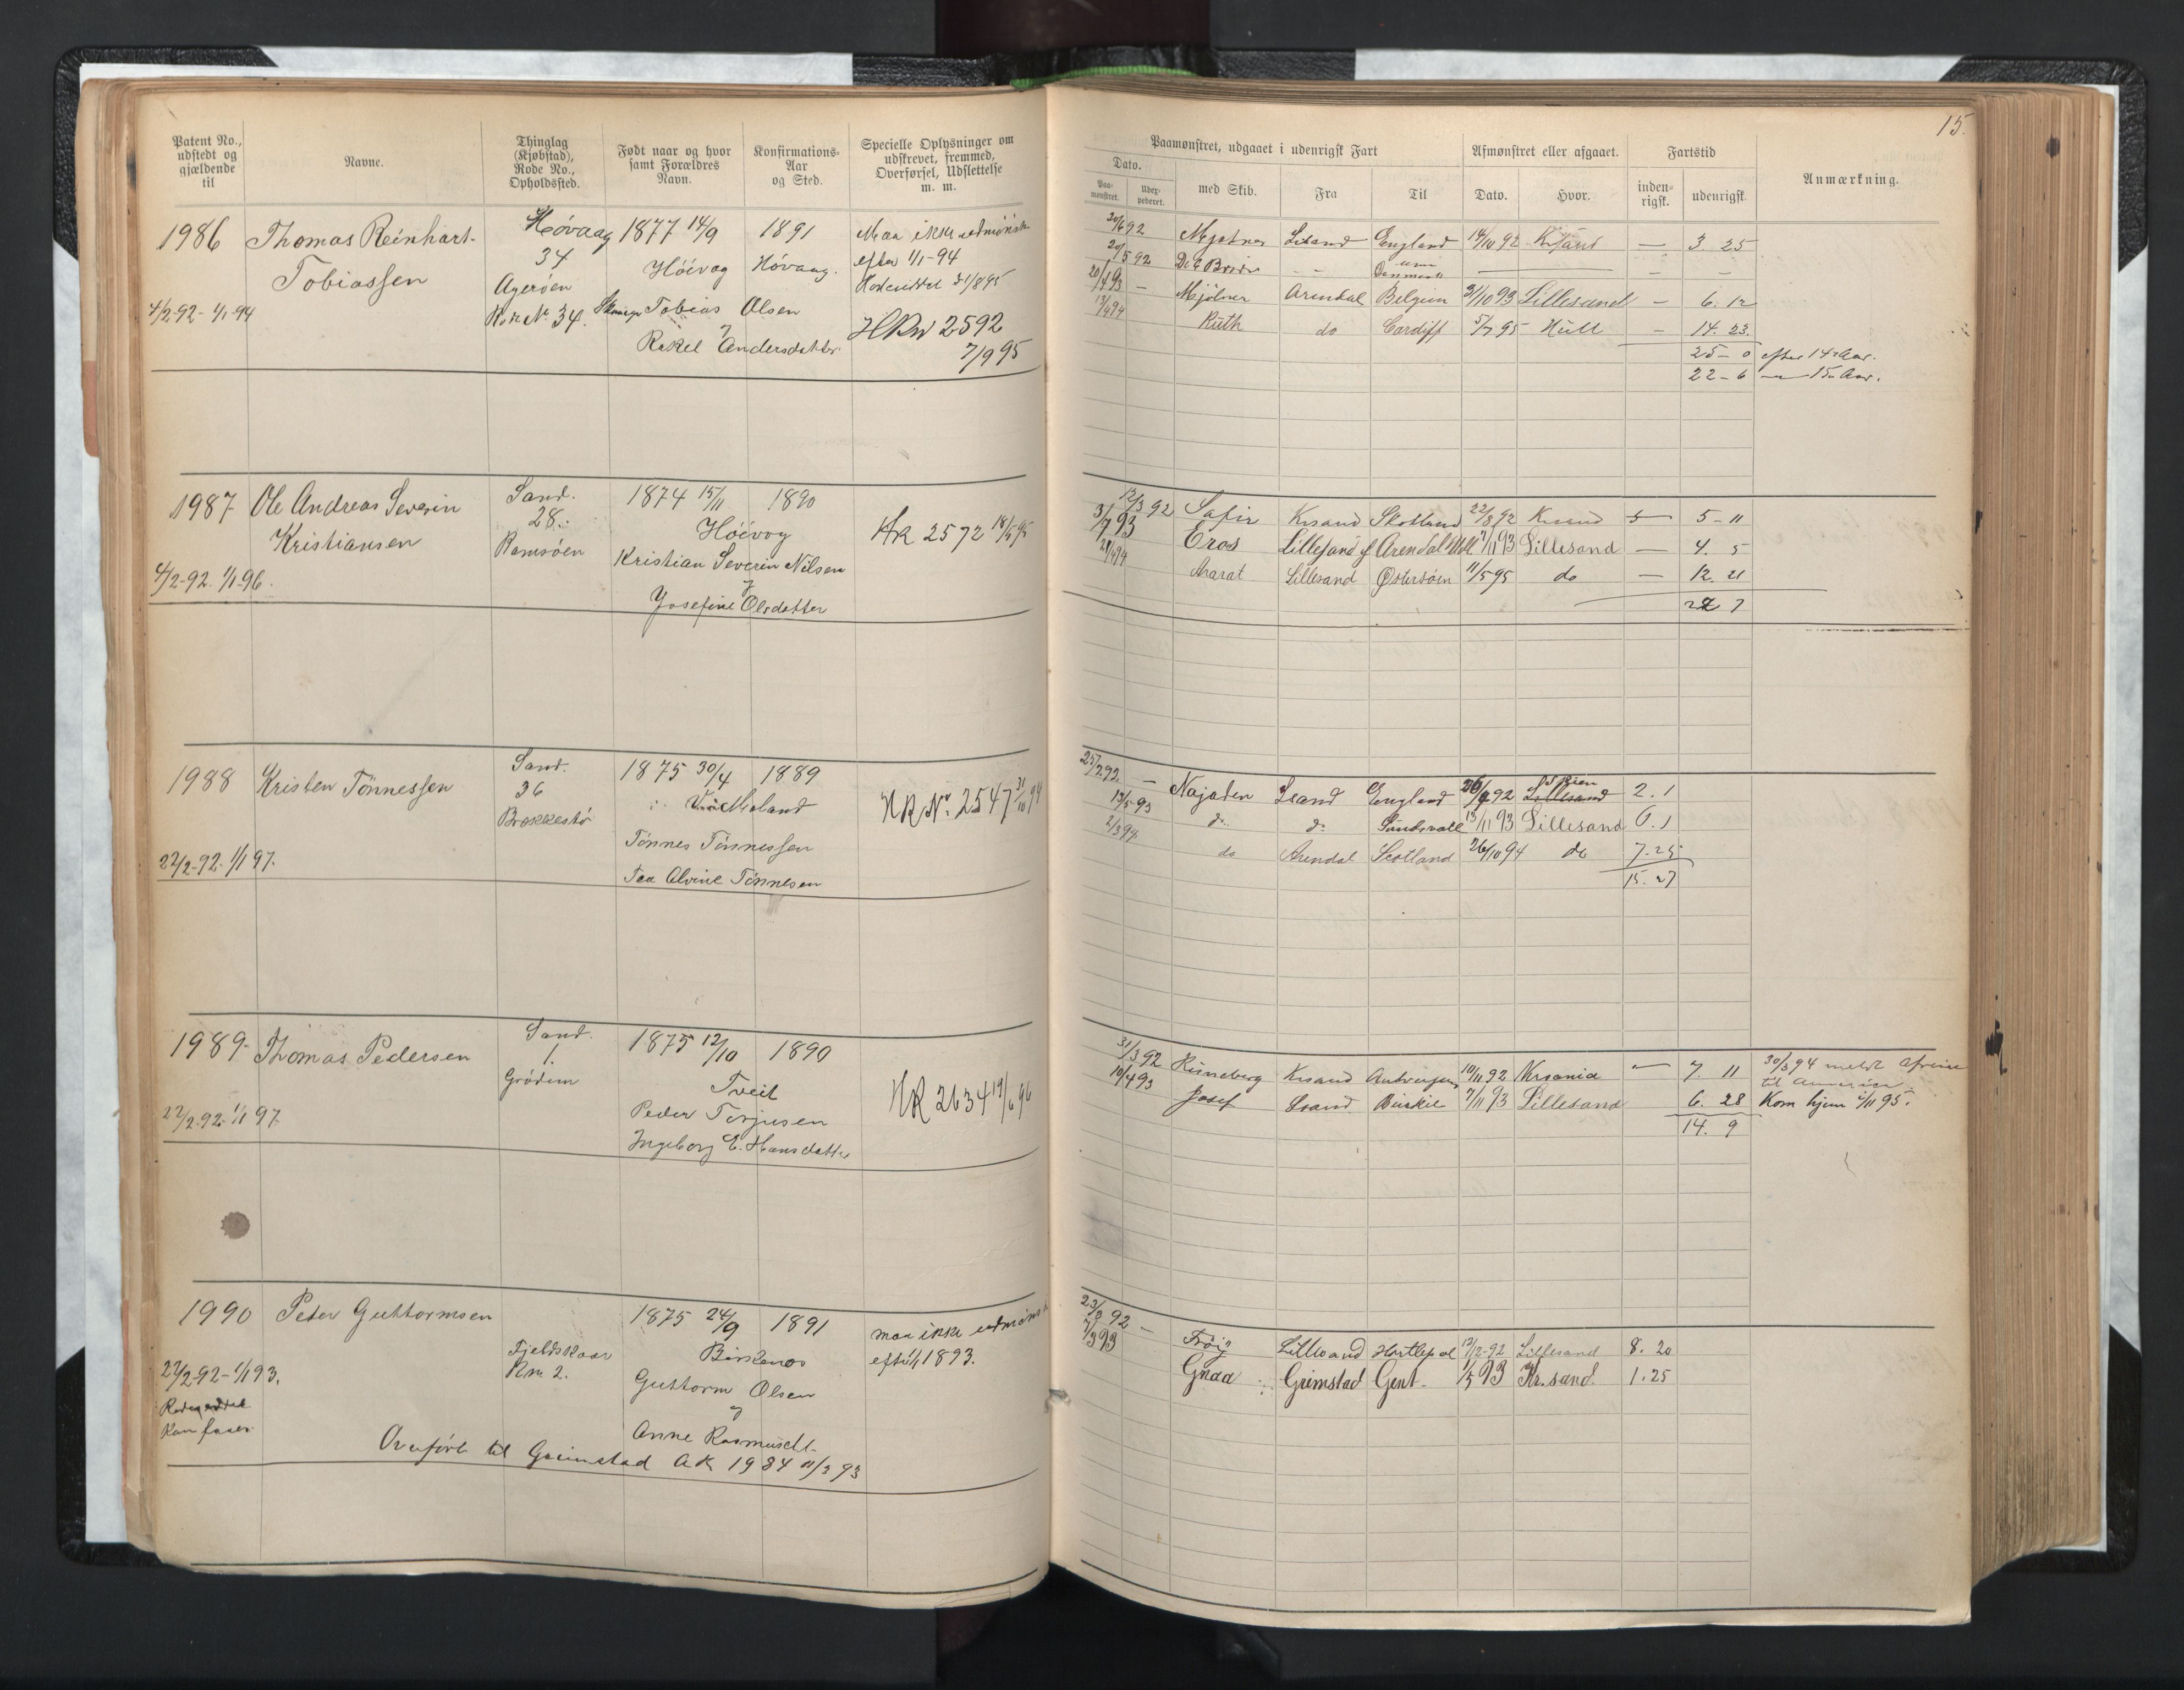 15.
Patent No., udstedt og gjældende til
Navne.
Thinglag (Kjøbstad), Rode No., Opholdssted.
Født naar og hvor samt Forældres Navn.
Konfirmations-Aar og Sted.
Specielle Oplysninger om udskrevet, fremmed, Overførsel, Udslettelse m. m.
Paamønstret, udgaaet i udenrigsk Fart
Afmønstret eller afgaaet.
Fartstid
Anmærkning.
Dato.
Paa-mønstret.
med Skib.
Fra
Til
Dato.
Hvor.
inden-rigsk.
udenrigsk.
1986 Thomas Reinhart- Høvaag 1877 14/9 1891 Maa ikke udmönstr
Tobiassen 34 Höivag Hövaag. efter 1/1-94
Agerøen
4/2-92- 1/1-94 Rok No 34. Tobias Olsen HRN 2592
og
Rakel Andersdatter 7/9 95
92 Mjølner England 14/10 92 — 3. 25
20/5 92 Danmark — — —
93 — Mjölner Arendal Belgien 31/10 93 Lillesand — 6. 12
94 Ruth do Cardiff 5/7 95 Hull — 14. 23.
25 - 0 efter 14 Aar.
22 - 6 — 15 Aar.
1987 Ole Andreas Severin Sand. 1874 15/11 1890
Kristiansen 28. Höivog HR 2572 18/5 95
Ramsöen Kristian Severin Nilsen
4/2-92. 1/1-96. og
Josefine Olsdatter
12/3 92 Safir Krsand Skotland 92 Krsand 5 - 11
31/7 93 Eros Lillesand Arendal 7/11 93 Lillesand — 4. 5
94 Ararat Lillesand Østersöen 11/5 95 do — 12. 21
22 7
1988 Kristen Tönnessen Sand. 1875 30/4 1889
36 HR No. 2547 31/10 94
Brækkestø
Tönnes Tönnessen
22/2-92. 1/1 97. Alvine Tönnesen
25/2 92 — Najaden Lsand England 92 Lillesand 2. 1
13/5 93 do. do Sundsvall 13/11 93 Lillesand 6. 1
2/3 94 do Arendal Scotland 26/10 94 do 7. 25
15. 27
1989 Thomas Pedersen Sand. 1875 12/10 1890
1.
Grödum Tveit HR 2634 96
22/2-92- 1/1 97 Peder Terjusen
Ingeborg E. Hansdatter
31/3 92 Rinneberg Krsand Antverpen 10/11 92 Krsania — 7. 11 30/3 94 meldt Afreise
til Amerika
10/4 93 Josef Lsand 7/11 93 Lillesand 6. 28 Kom hjem 95.
14. 9
1990 Peder Guttormsen 1875 24/9 1891 maa ikke udmönst
Fjeldskaar Birkenes efter 1/1 1893.
22/2-92- 1/1 93. Rn. 2. Guttorm Olsen
og
Kan farer Anne Rasmusdt.
Overført til Grimstad AK 1984 11/3 93
23/3 92 — Fröy Lillesand Hartlepool 13/12-92 Lillesand 8. 20
7/3 93 Gnaa Grimstad Gent- 93 Kr.sand. 1. 25